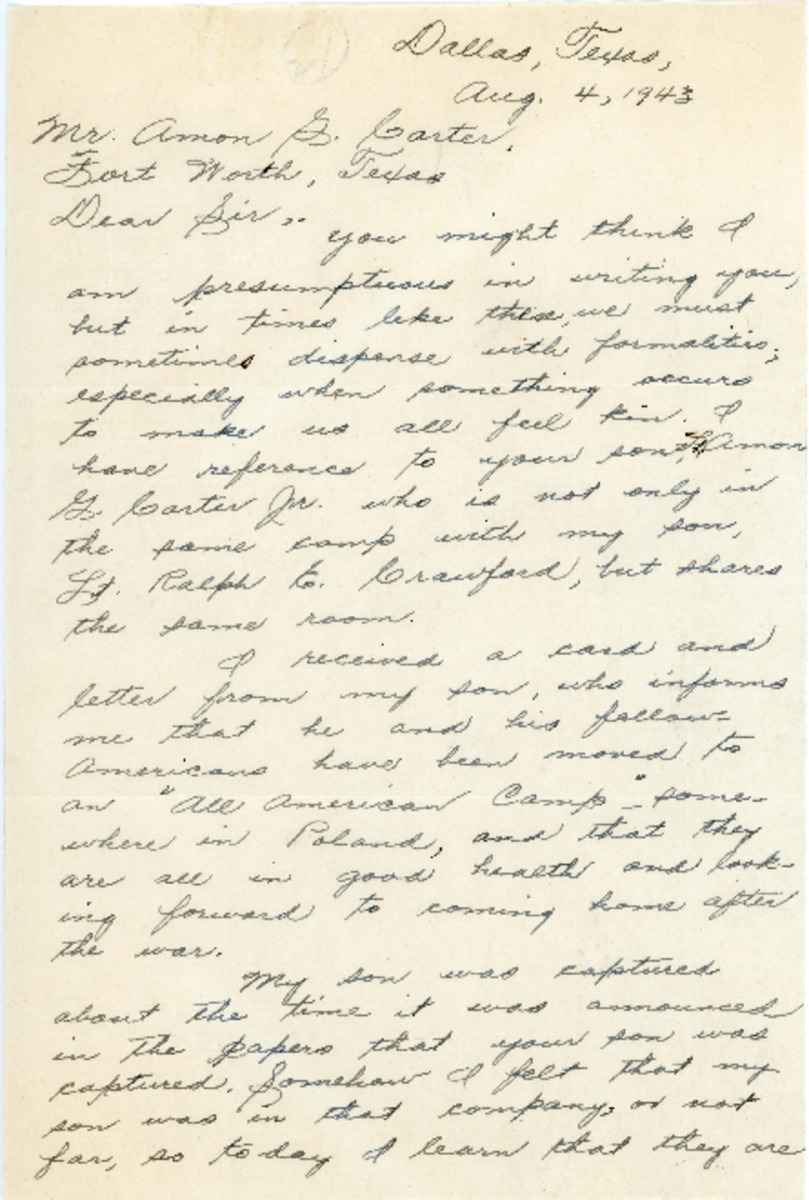 Dallas, Texas,
Aug. 4, 1943
Mr. Amon G. Carter,
Fort Worth, Texas
Dear Sir:
You might think I
am presumptuous in writing you,
but in times like this, we must
sometimes dispense with formalities;
especially when something occurs
to make us all feel kin. I
have reference to your son, Amon
G. Carter Jr. who is not only in
the same camp with my son,
Lt. Ralph E. Crawford, but shares
the same room.
I received a card and
letter from my son, who informs
me that he and his fellow-
Americans have been moved to
an "All American Camp" - some-
where in Poland, and that they
are all in good health and look-
ing forward to coming home after
the war.
My son was captured
about the time it was announced
in the papers that your son was
captured. Somehow I felt that my
son was in that company, or not
far, so today I learn that they are